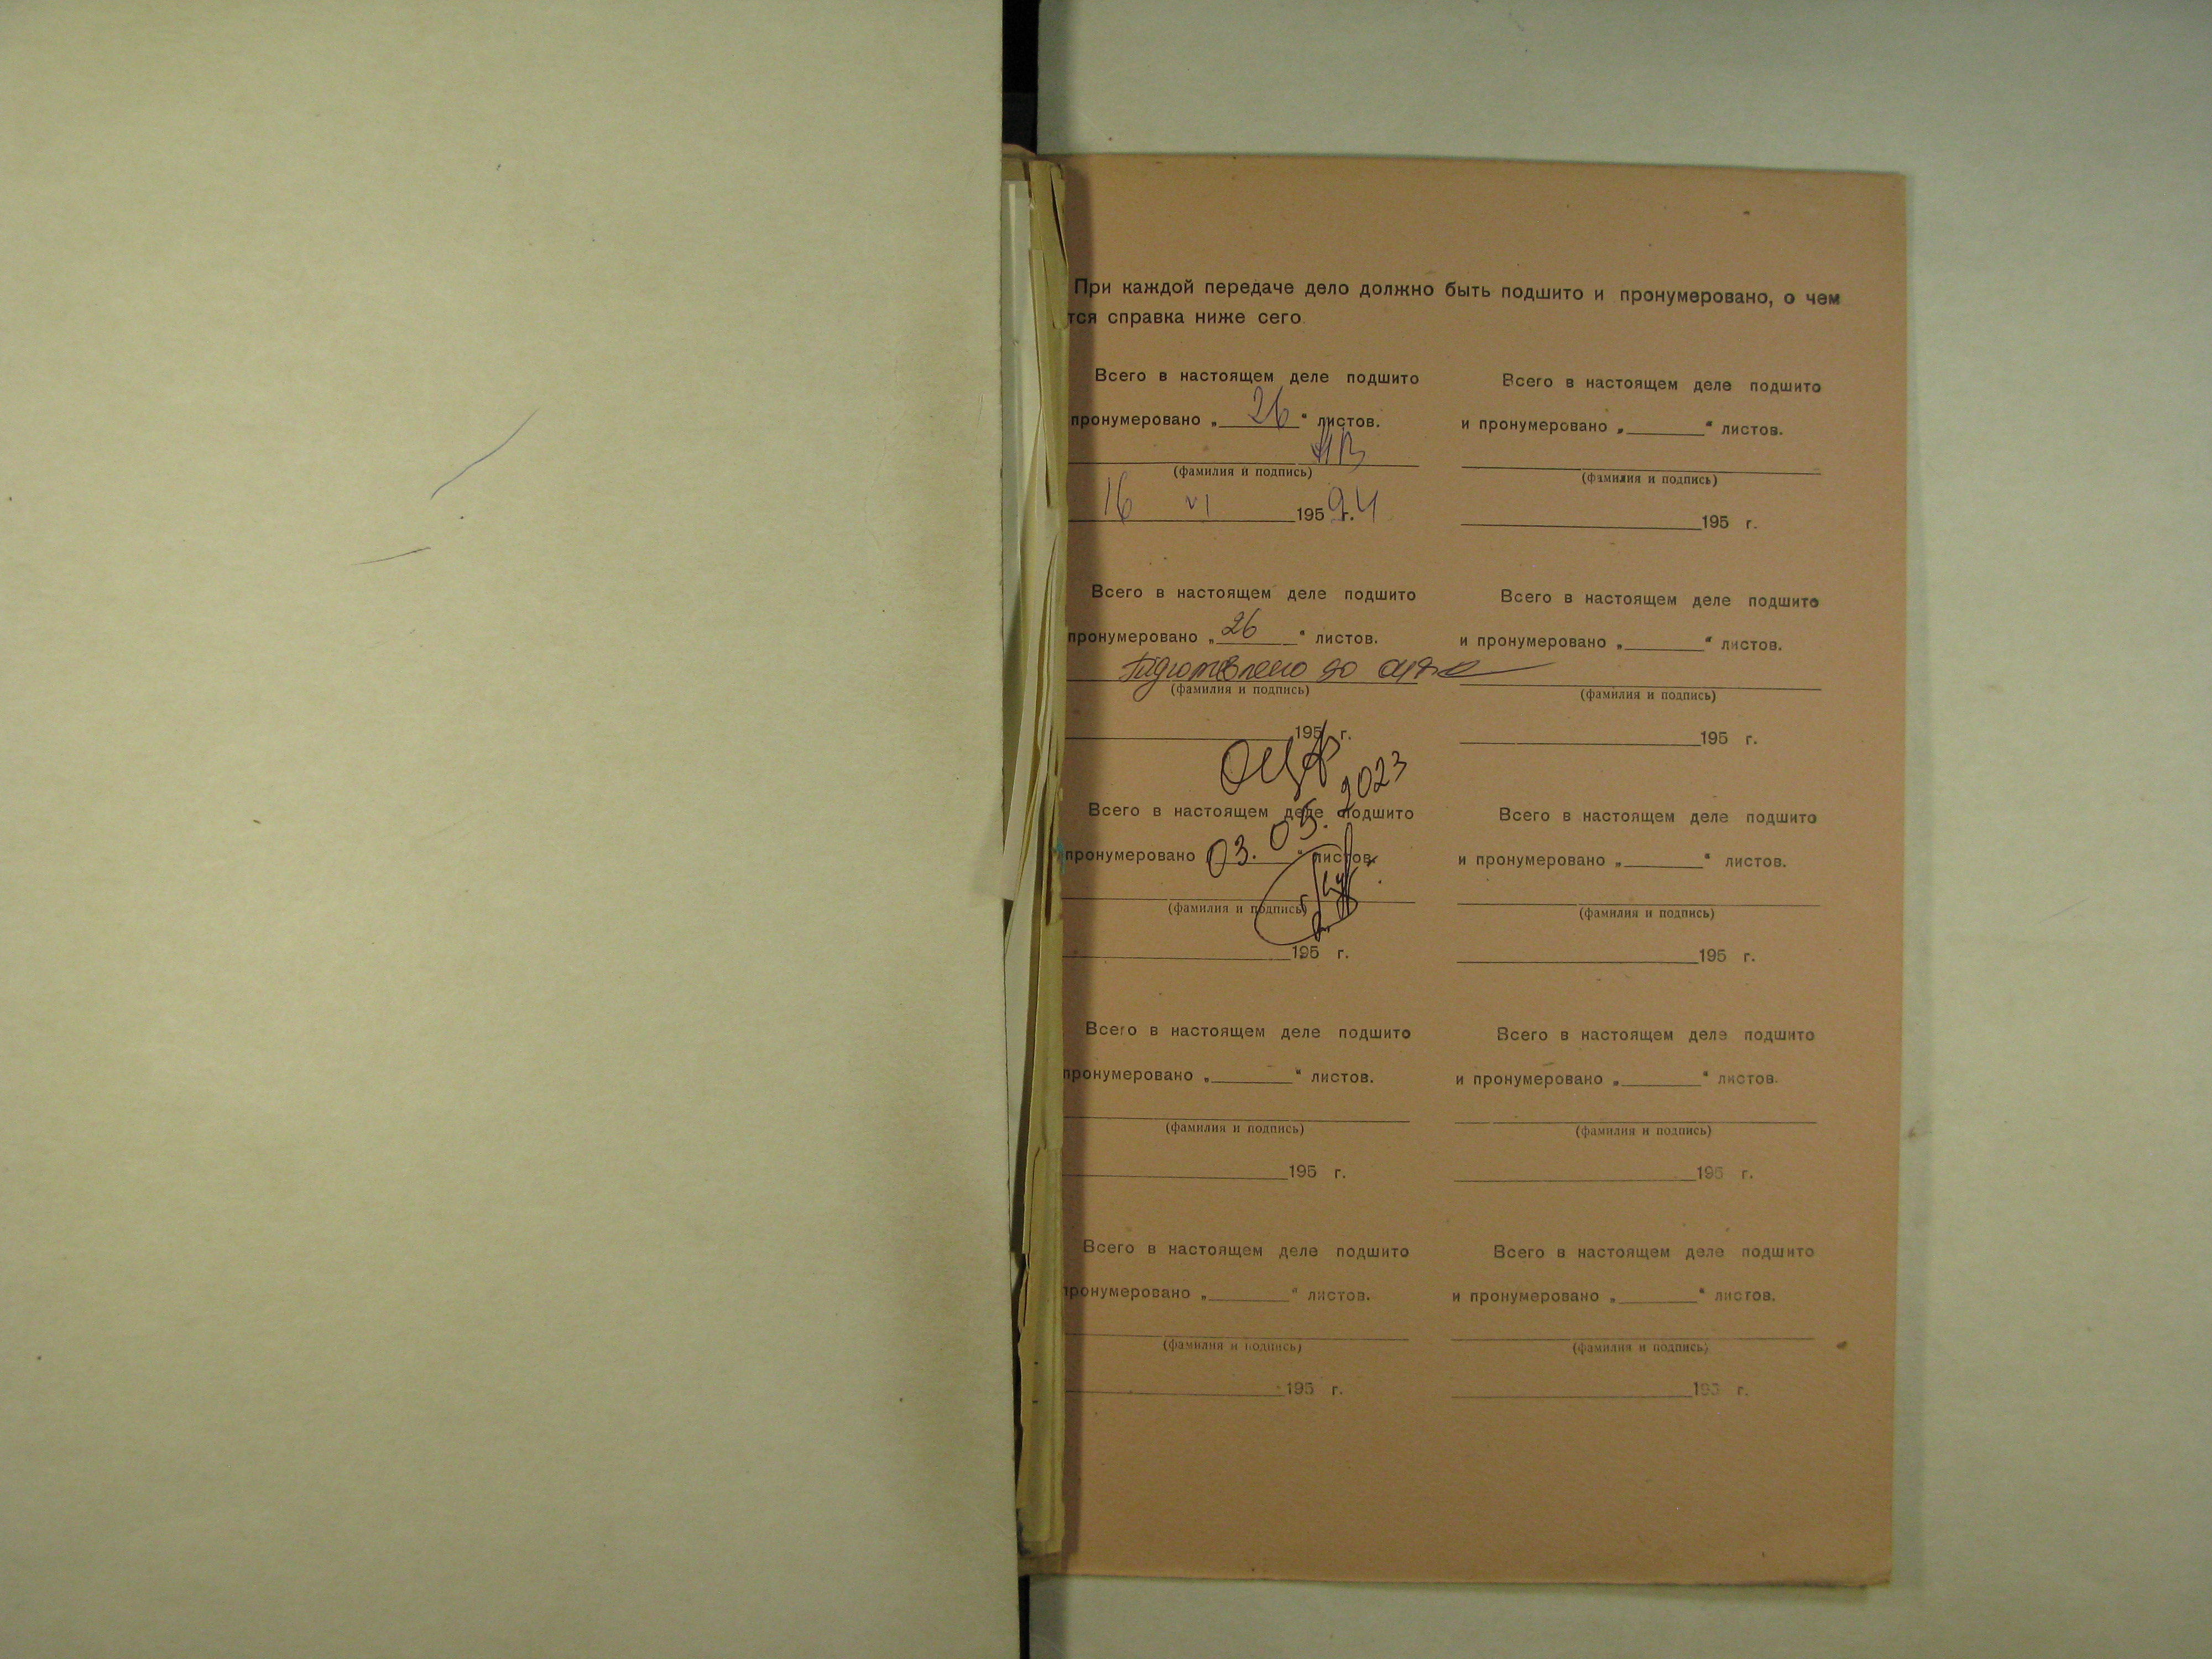 При каждой передаче дело должно быть подшито и пронумеровано, о чем
тся справка ниже сего.
Всего в настоящем деле подшито
пронумеровано „ 26 “ листов.
(фамилия и подпись)
16 VI 195 94 г.
Всего в настоящем деле подшито
пронумеровано „ 26 “ листов.
Підготовлено до
(фамилия и подпись)
195 г.
ОЦФ
Всего в настоящем деле подшито
пронумеровано „ “ листов.
03.05.2023
(фамилия и подпись)
195 г.
Всего в настоящем деле подшито
пронумеровано „ “ листов.
(фамилия и подпись)
195 г.
Всего в настоящем деле подшито
пронумеровано „ “ листов.
(фамилия и подпись)
195 г.
Всего в настоящем деле подшито
и пронумеровано „ “ листов.
(фамилия и подпись)
195 г.
Всего в настоящем деле подшито
и пронумеровано „ “ листов.
(фамилия и подпись)
195 г.
Всего в настоящем деле подшито
и пронумеровано „ “ листов.
(фамилия и подпись)
195 г.
Всего в настоящем деле подшито
и пронумеровано „ “ листов.
(фамилия и подпись)
195 г.
Всего в настоящем деле подшито
и пронумеровано „ “ листов.
(фамилия и подпись)
195 г.